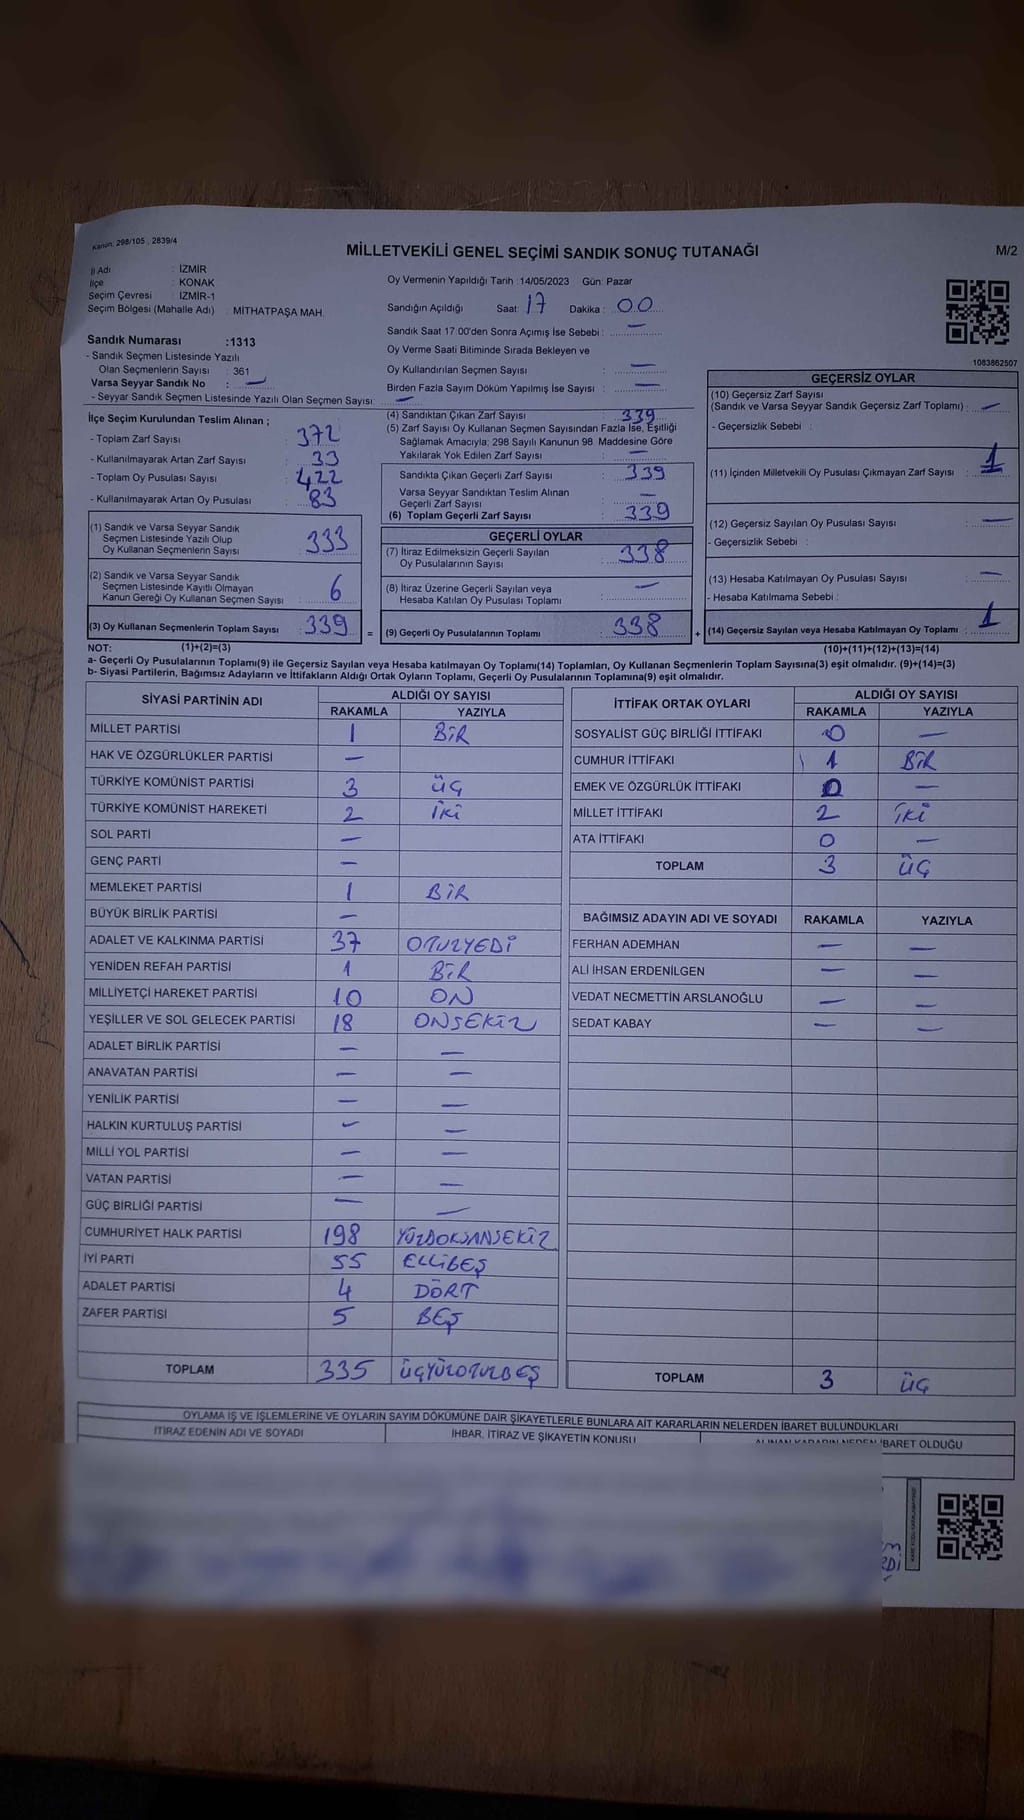 Kanun: 298/105 , 2839/4
MİLLETVEKİLİ GENEL SEÇİMİ SANDIK SONUÇ TUTANAĞI
M/2
İl Adı : İZMİR
İlçe : KONAK
Seçim Çevresi : İZMİR-1
Seçim Bölgesi (Mahalle Adı) : MİTHATPAŞA MAH.
Oy Vermenin Yapıldığı Tarih :14/05/2023 Gün: Pazar
Sandığın Açıldığı Saat: 17 Dakika : 00
Sandık Saat 17:00'den Sonra Açımış İse Sebebi : —
Oy Verme Saati Bitiminde Sırada Bekleyen ve
Oy Kullandırılan Seçmen Sayısı : —
Birden Fazla Sayım Döküm Yapılmış İse Sayısı : —
1083862507
Sandık Numarası :1313
- Sandık Seçmen Listesinde Yazılı
Olan Seçmenlerin Sayısı : 361
Varsa Seyyar Sandık No : —
- Seyyar Sandık Seçmen Listesinde Yazılı Olan Seçmen Sayısı: —
İlçe Seçim Kurulundan Teslim Alınan ;
- Toplam Zarf Sayısı : 372
- Kullanılmayarak Artan Zarf Sayısı : 33
- Toplam Oy Pusulası Sayısı : 422
- Kullanılmayarak Artan Oy Pusulası : 83
(1) Sandık ve Varsa Seyyar Sandık
Seçmen Listesinde Yazılı Olup
Oy Kullanan Seçmenlerin Sayısı : 333
(2) Sandık ve Varsa Seyyar Sandık
Seçmen Listesinde Kayıtlı Olmayan
Kanun Gereği Oy Kullanan Seçmen Sayısı : 6
(3) Oy Kullanan Seçmenlerin Toplam Sayısı : 339
(4) Sandıktan Çıkan Zarf Sayısı : 339
(5) Zarf Sayısı Oy Kullanan Seçmen Sayısından Fazla İse, Eşitliği
Sağlamak Amacıyla; 298 Sayılı Kanunun 98. Maddesine Göre
Yakılarak Yok Edilen Zarf Sayısı : —
Sandıkta Çıkan Geçerli Zarf Sayısı : 339
Varsa Seyyar Sandıktan Teslim Alınan
Geçerli Zarf Sayısı : —
(6) Toplam Geçerli Zarf Sayısı : 339
GEÇERLİ OYLAR
(7) İtiraz Edilmeksizin Geçerli Sayılan
Oy Pusulalarının Sayısı : 338
(8) İtiraz Üzerine Geçerli Sayılan veya
Hesaba Katılan Oy Pusulası Toplamı : —
= (9) Geçerli Oy Pusulalarının Toplamı : 338
GEÇERSİZ OYLAR
(10) Geçersiz Zarf Sayısı
(Sandık ve Varsa Seyyar Sandık Geçersiz Zarf Toplamı) : —
- Geçersizlik Sebebi :
(11) İçinden Milletvekili Oy Pusulası Çıkmayan Zarf Sayısı : 1
(12) Geçersiz Sayılan Oy Pusulası Sayısı : —
- Geçersizlik Sebebi :
(13) Hesaba Katılmayan Oy Pusulası Sayısı : —
- Hesaba Katılmama Sebebi :
+ (14) Geçersiz Sayılan veya Hesaba Katılmayan Oy Toplamı : 1
NOT: (1)+(2)=(3) (10)+(11)+(12)+(13)=(14)
a- Geçerli Oy Pusulalarının Toplamı(9) ile Geçersiz Sayılan veya Hesaba katılmayan Oy Toplamı(14) Toplamları, Oy Kullanan Seçmenlerin Toplam Sayısına(3) eşit olmalıdır. (9)+(14)=(3)
b- Siyasi Partilerin, Bağımsız Adayların ve İttifakların Aldığı Ortak Oyların Toplamı, Geçerli Oy Pusulalarının Toplamına(9) eşit olmalıdır.
SİYASİ PARTİNİN ADI ALDIĞI OY SAYISI
RAKAMLA YAZIYLA
MİLLET PARTİSİ 1 BİR
HAK VE ÖZGÜRLÜKLER PARTİSİ —
TÜRKİYE KOMÜNİST PARTİSİ 3 ÜÇ
TÜRKİYE KOMÜNİST HAREKETİ 2 İKİ
SOL PARTİ —
GENÇ PARTİ —
MEMLEKET PARTİSİ 1 BİR
BÜYÜK BİRLİK PARTİSİ —
ADALET VE KALKINMA PARTİSİ 37 OTUZYEDİ
YENİDEN REFAH PARTİSİ 1 BİR
MİLLİYETÇİ HAREKET PARTİSİ 10 ON
YEŞİLLER VE SOL GELECEK PARTİSİ 18 ONSEKİZ
ADALET BİRLİK PARTİSİ — —
ANAVATAN PARTİSİ — —
YENİLİK PARTİSİ — —
HALKIN KURTULUŞ PARTİSİ — —
MİLLİ YOL PARTİSİ — —
VATAN PARTİSİ — —
GÜÇ BİRLİĞİ PARTİSİ — —
CUMHURİYET HALK PARTİSİ 198 YÜZDOKSANSEKİZ
İYİ PARTİ 55 ELLİBEŞ
ADALET PARTİSİ 4 DÖRT
ZAFER PARTİSİ 5 BEŞ
TOPLAM 335 ÜÇYÜZOTUZBEŞ
İTTİFAK ORTAK OYLARI ALDIĞI OY SAYISI
RAKAMLA YAZIYLA
SOSYALİST GÜÇ BİRLİĞİ İTTİFAKI 0 —
CUMHUR İTTİFAKI 1 BİR
EMEK VE ÖZGÜRLÜK İTTİFAKI 0 —
MİLLET İTTİFAKI 2 İKİ
ATA İTTİFAKI 0 —
TOPLAM 3 ÜÇ
BAĞIMSIZ ADAYIN ADI VE SOYADI RAKAMLA YAZIYLA
FERHAN ADEMHAN — —
ALİ İHSAN ERDENİLGEN — —
VEDAT NECMETTİN ARSLANOĞLU — —
SEDAT KABAY — —
TOPLAM 3 ÜÇ
OYLAMA İŞ VE İŞLEMLERİNE VE OYLARIN SAYIM DÖKÜMÜNE DAİR ŞİKAYETLERLE BUNLARA AİT KARARLARIN NELERDEN İBARET BULUNDUKLARI
İTİRAZ EDENİN ADI VE SOYADI İHBAR, İTİRAZ VE ŞİKAYETİN KONUSU ALINAN KARARIN NEDEN İBARET OLDUĞU